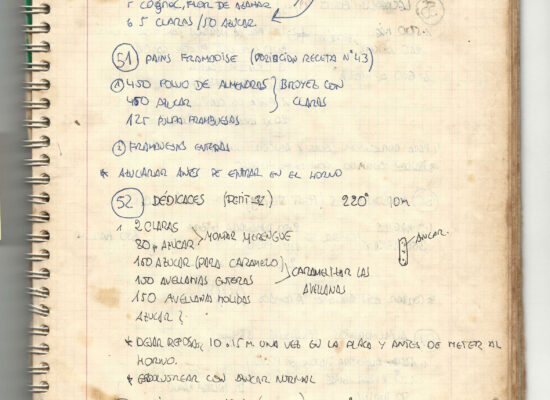 5 COGÑAC, FLOR DE AZAHAR
6 5 CLARAS / 50 AZUCAR
51 PAINS FRAMBOISE (PARECIDA RECETA Nº 43)
1 450 POLVO DE ALMENDRAS BROYEZ CON
450 AZUCAR CLARAS
125 PULPA FRAMBUESAS
2 FRAMBUESAS ENTERAS
* AZUCARAR ANTES DE ENTRAR EN EL HORNO
52 DÉDICACES (PETIT 52) 220° 10m
1 2 CLARAS
80 gr AZUCAR MONTAR MERENGUE
AZUCAR.
150 AZUCAR (PARA CARAMELO)
150 AVELLANAS ENTERAS CARAMELIZAR LAS
150 AVELLANA MOLIDAS AVELLANAS
AZUCAR?
* DEJAR REPOSAR 10 o 15 M UNA VEZ EN LA PLACA Y ANTES DE METER AL
HORNO.
* ESPOLVOREAR CON AZUCAR NORMAL